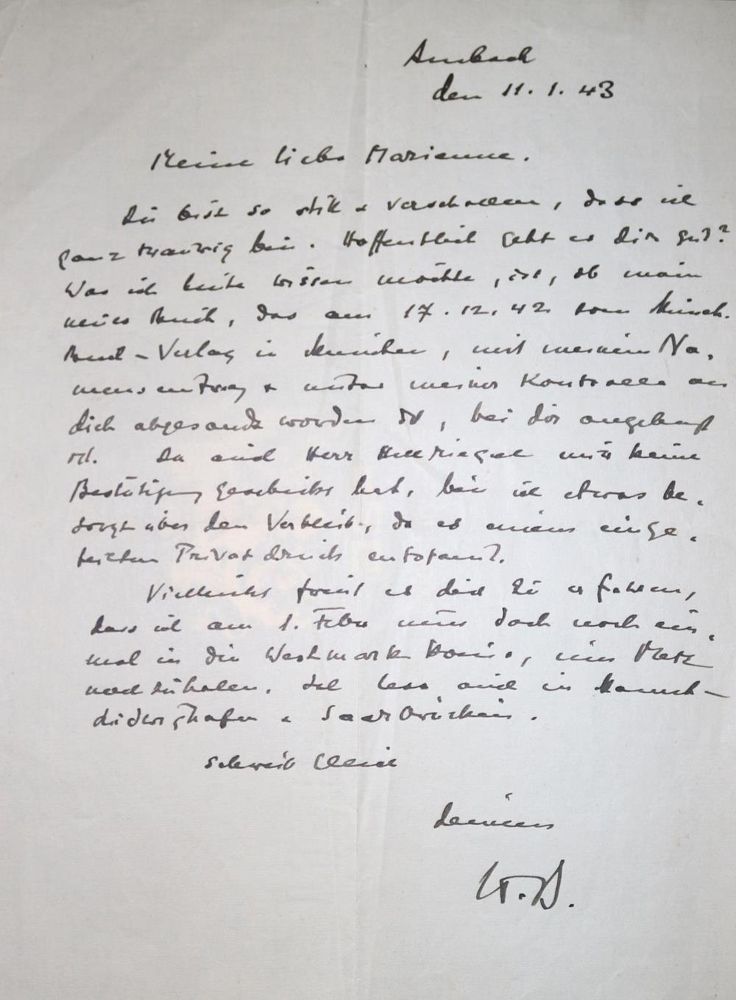 Ambach
den 11. 1. 43
Meine liebe Marianne.
Du bist so still & verschollen, dass ich
ganz traurig bin. Hoffentlich geht es dir gut?
Was ich heute wissen möchte, ist, ob mein
neues Buch, das am 17.12.42 vom Münch.
Buch-Verlag in München, mit meinem Na-
menseintrag & unter meiner Kontrolle an
dich abgesandt worden ist, bei dir angelangt
ist. Da auch Herr Hellriegel mir keine
Bestätigung geschickt hat, bin ich etwas be-
sorgt über den Verbleib, da es einem
Privatdruck entstammt.
Vielleicht freut es dich zu erfahren,
dass ich am 1. Feber nun doch noch ein-
mal in die Westmark komme, um Metz
nachzuholen. Ich lese auch in Mannh-
Ludwigshafen & Saarbrücken.
Schreib gleich
deinem
W.B.